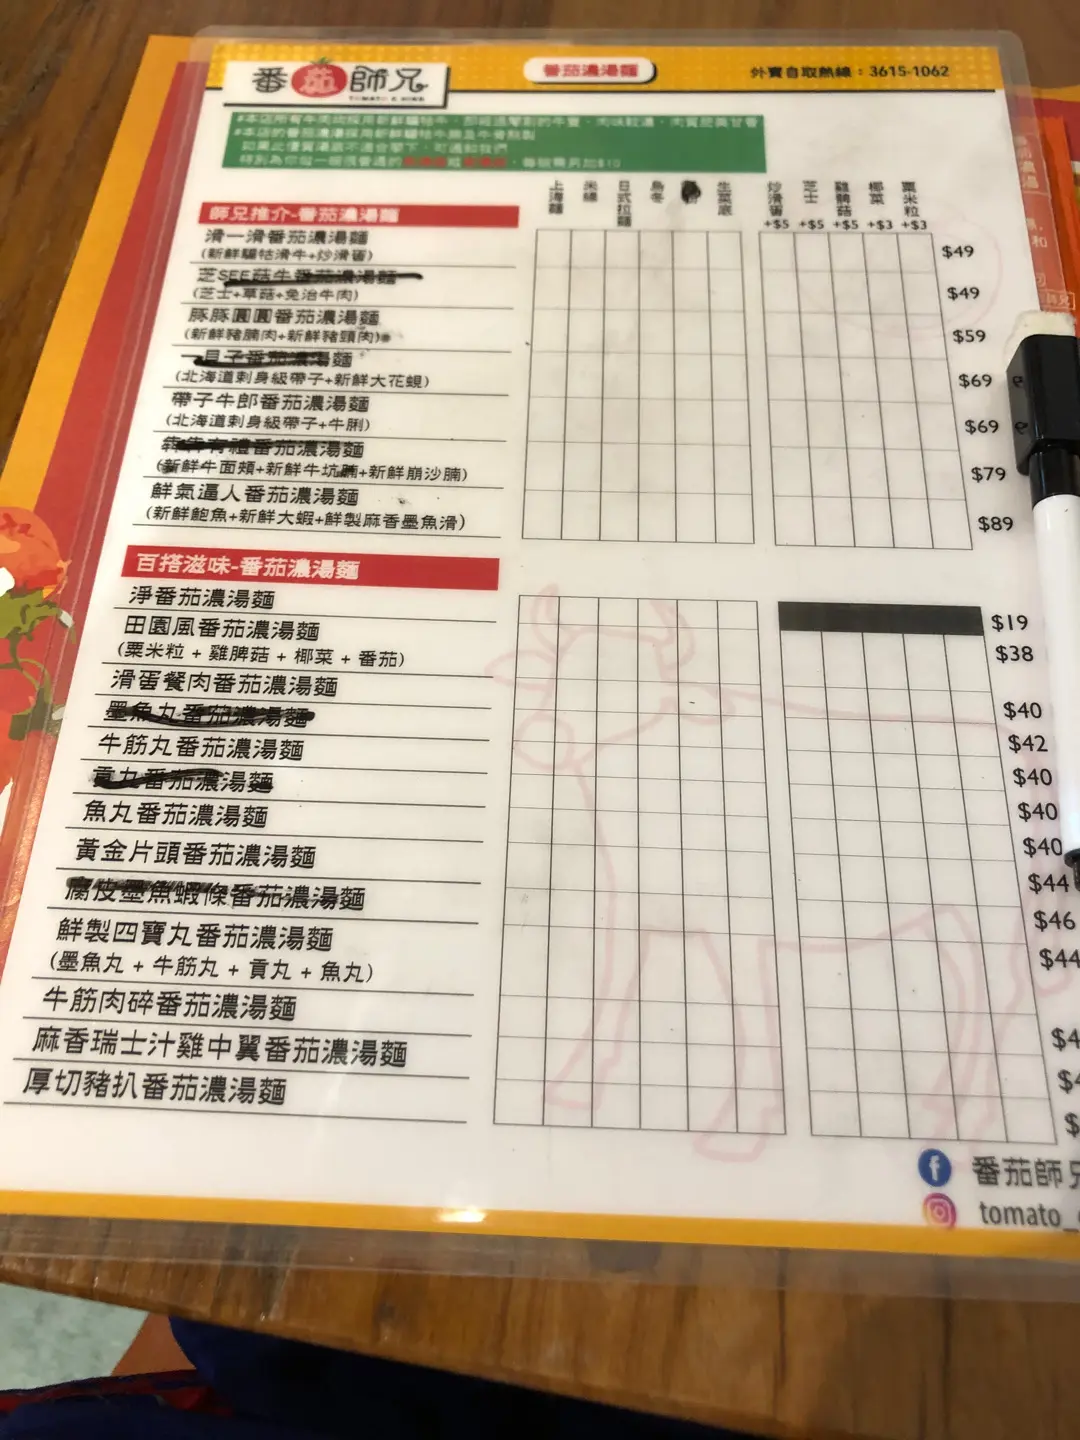 番茄師兄
番茄濃湯麵
外賣自取熱線：3615-1062
#本店的番茄濃湯採用新鮮騸牯牛腩及牛骨熬製
如果此優質湯底不適合閣下，可通知我們
上海麵
米線
日式拉麵
烏冬
生菜底
炒滑蛋 +$5
芝士 +$5
雞髀菇 +$5
椰菜 +$3
粟米粒 +$3
師兄推介-番茄濃湯麵
滑一滑番茄濃湯麵
(新鮮騸牯滑牛+炒滑蛋)
$49
芝SEE菇牛番茄濃湯麵
(芝士+草菇+免治牛肉)
$49
豚豚圓圓番茄濃湯麵
(新鮮豬腩肉+新鮮豬頸肉)
$59
貝子番茄濃湯麵
(北海道刺身級帶子+新鮮大花蜆)
$69
帶子牛郎番茄濃湯麵
(北海道刺身級帶子+牛脷)
$69
有禮番茄濃湯麵
(新鮮牛面頰+新鮮牛坑腩+新鮮崩沙腩)
$79
鮮氣逼人番茄濃湯麵
(新鮮鮑魚+新鮮大蝦+鮮製麻香墨魚滑)
$89
百搭滋味-番茄濃湯麵
淨番茄濃湯麵
$19
田園風番茄濃湯麵
(粟米粒 + 雞脾菇 + 椰菜 + 番茄)
$38
滑蛋餐肉番茄濃湯麵
$40
墨魚丸番茄濃湯麵
$42
牛筋丸番茄濃湯麵
$40
貢丸番茄濃湯麵
$40
魚丸番茄濃湯麵
$40
黃金片頭番茄濃湯麵
$44
腐皮墨魚蝦條番茄濃湯麵
$46
鮮製四寶丸番茄濃湯麵
(墨魚丸 + 牛筋丸 + 貢丸 + 魚丸)
$44
牛筋肉碎番茄濃湯麵
$4
麻香瑞士汁雞中翼番茄濃湯麵
$4
厚切豬扒番茄濃湯麵
$
番茄師兄
tomato_